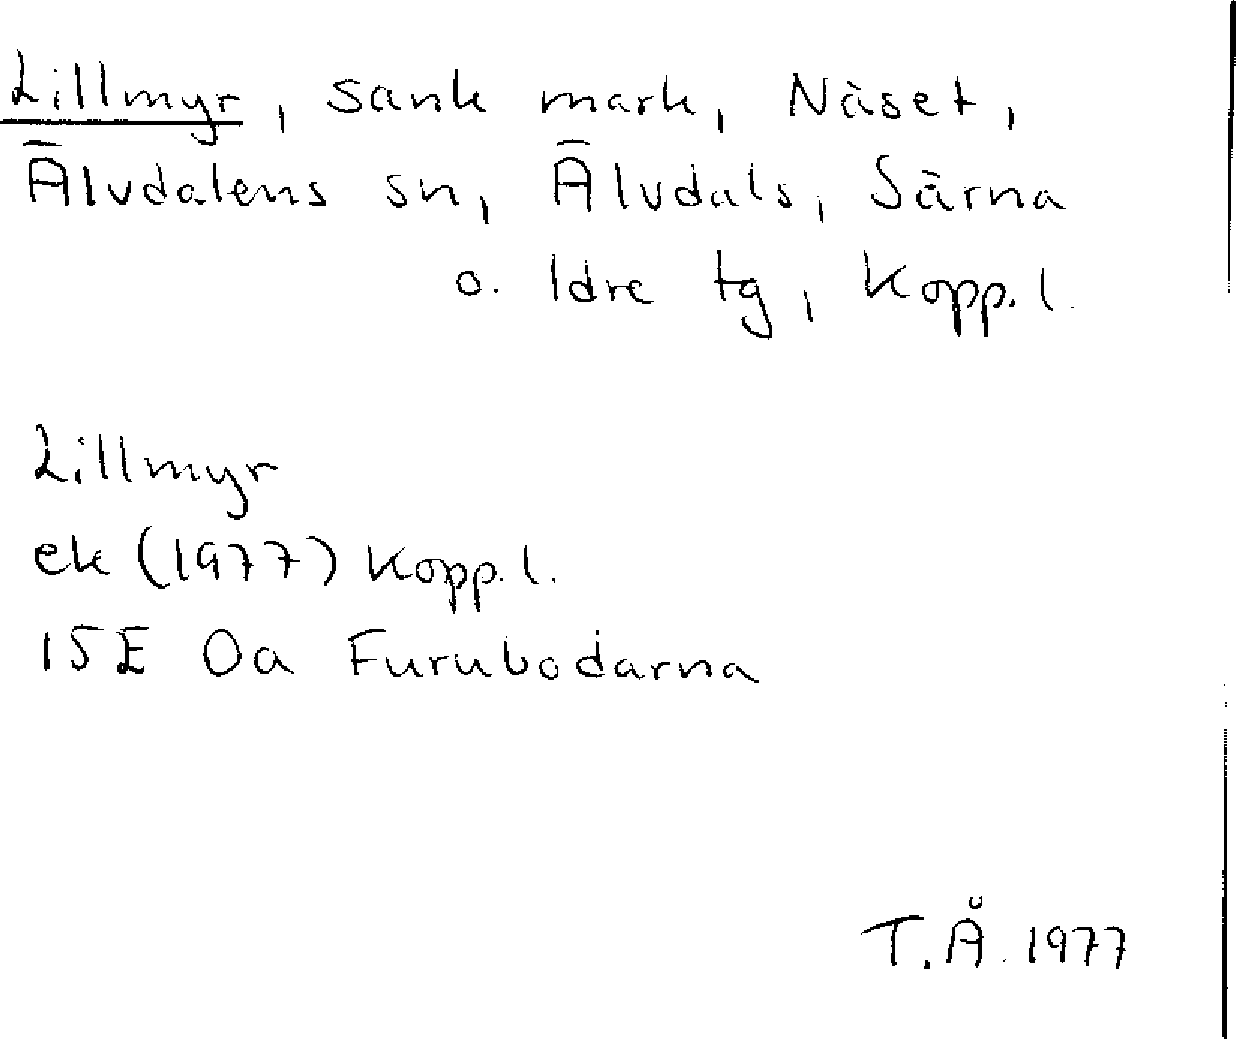 Lillmyr, sank mark, Näset,
Älvdalens sn, Älvdals, Särna
o. Idre tg, Kopp. l.
Lillmyr
ek (1977) Kopp. l.
15E 0a Furubodarna
T.Å. 1977